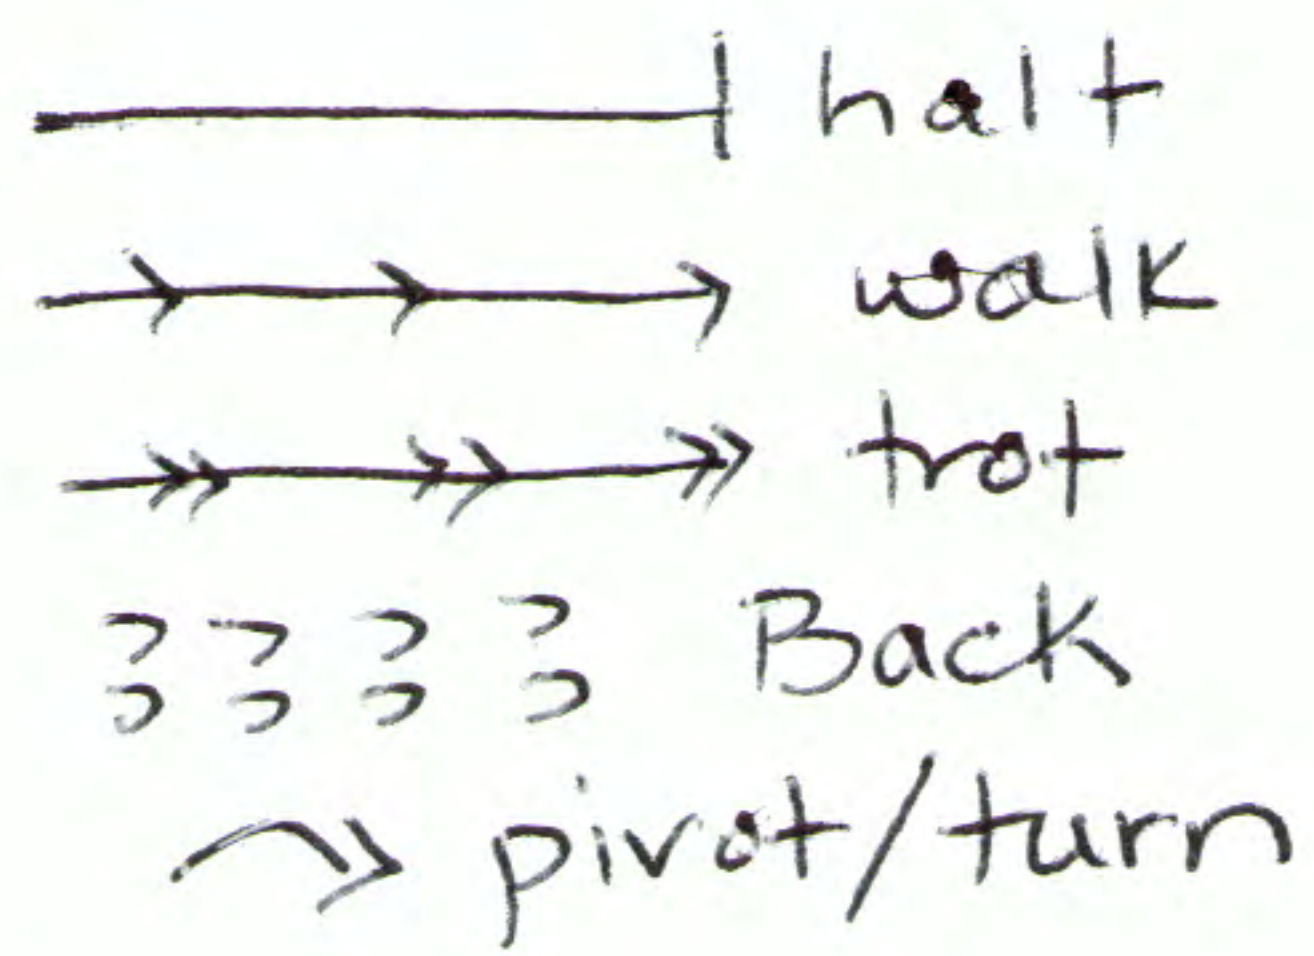 halt
walk
trot
Back
pivot/turn